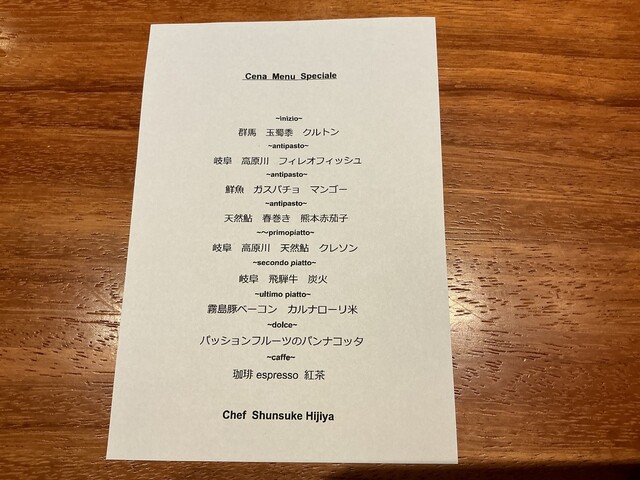 Cena Menu Speciale
~inizio~
群馬　玉蜀黍　クルトン
~antipasto~
岐阜　高原川　フィレオフィッシュ
~antipasto~
鮮魚　ガスパチョ　マンゴー
~antipasto~
天然鮎　春巻き　熊本赤茄子
~~primopiatto~
岐阜　高原川　天然鮎　クレソン
~secondo piatto~
岐阜　飛騨牛　炭火
~ultimo piatto~
霧島豚ベーコン　カルナローリ米
~dolce~
パッションフルーツのパンナコッタ
~caffe~
珈琲 espresso 紅茶
Chef Shunsuke Hijiya